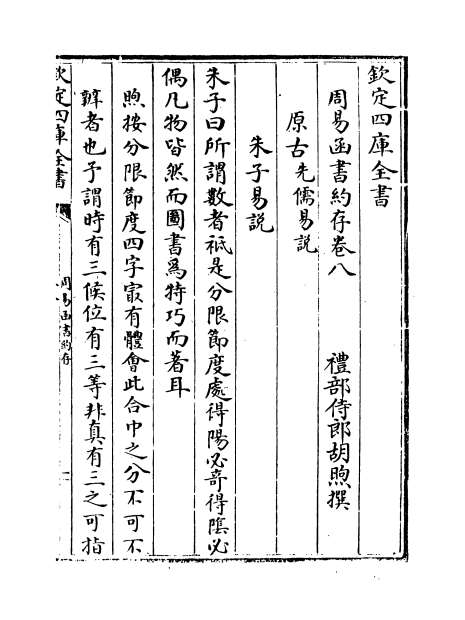 欽定四庫全書
周易函書約存卷八
禮部侍郎胡煦撰
原古先儒易説
朱子易説
朱子曰所謂數者祗是分限節度處得陽必竒得隂必
偶凡物皆然而圖書爲特巧而著耳
煦按分限節度四字㝡有體會此合中之分不可不
辨者也予謂時有三候位有三等非真有三之可指
欽定四庫全書
周易函書約存